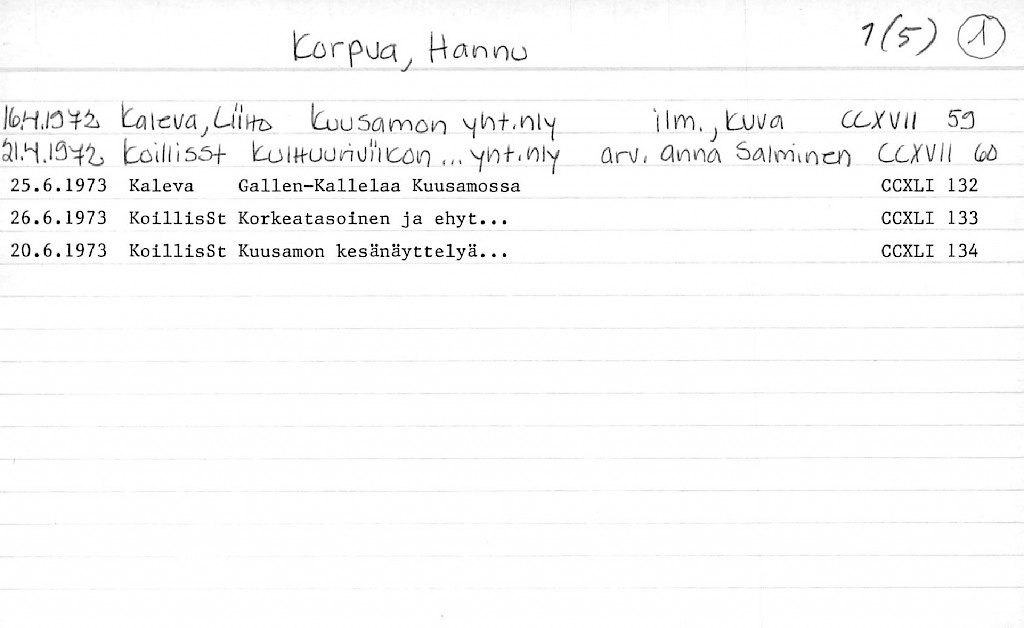 Korpua, Hannu 1(5) 1
16.4.1972 Kaleva, Liitto Kuusamon yht.nly ilm., kuva CCXVII 59
21.4.1972 KoillisSt Kulttuuriviikon... yht.nly arv. Anna Salminen CCXVII 60
25.6.1973 Kaleva Gallen-Kallelaa Kuusamossa CCXLI 132
26.6.1973 KoillisSt Korkeatasoinen ja ehyt... CCXLI 133
20.6.1973 KoillisSt Kuusamon kesänäyttelyä... CCXLI 134